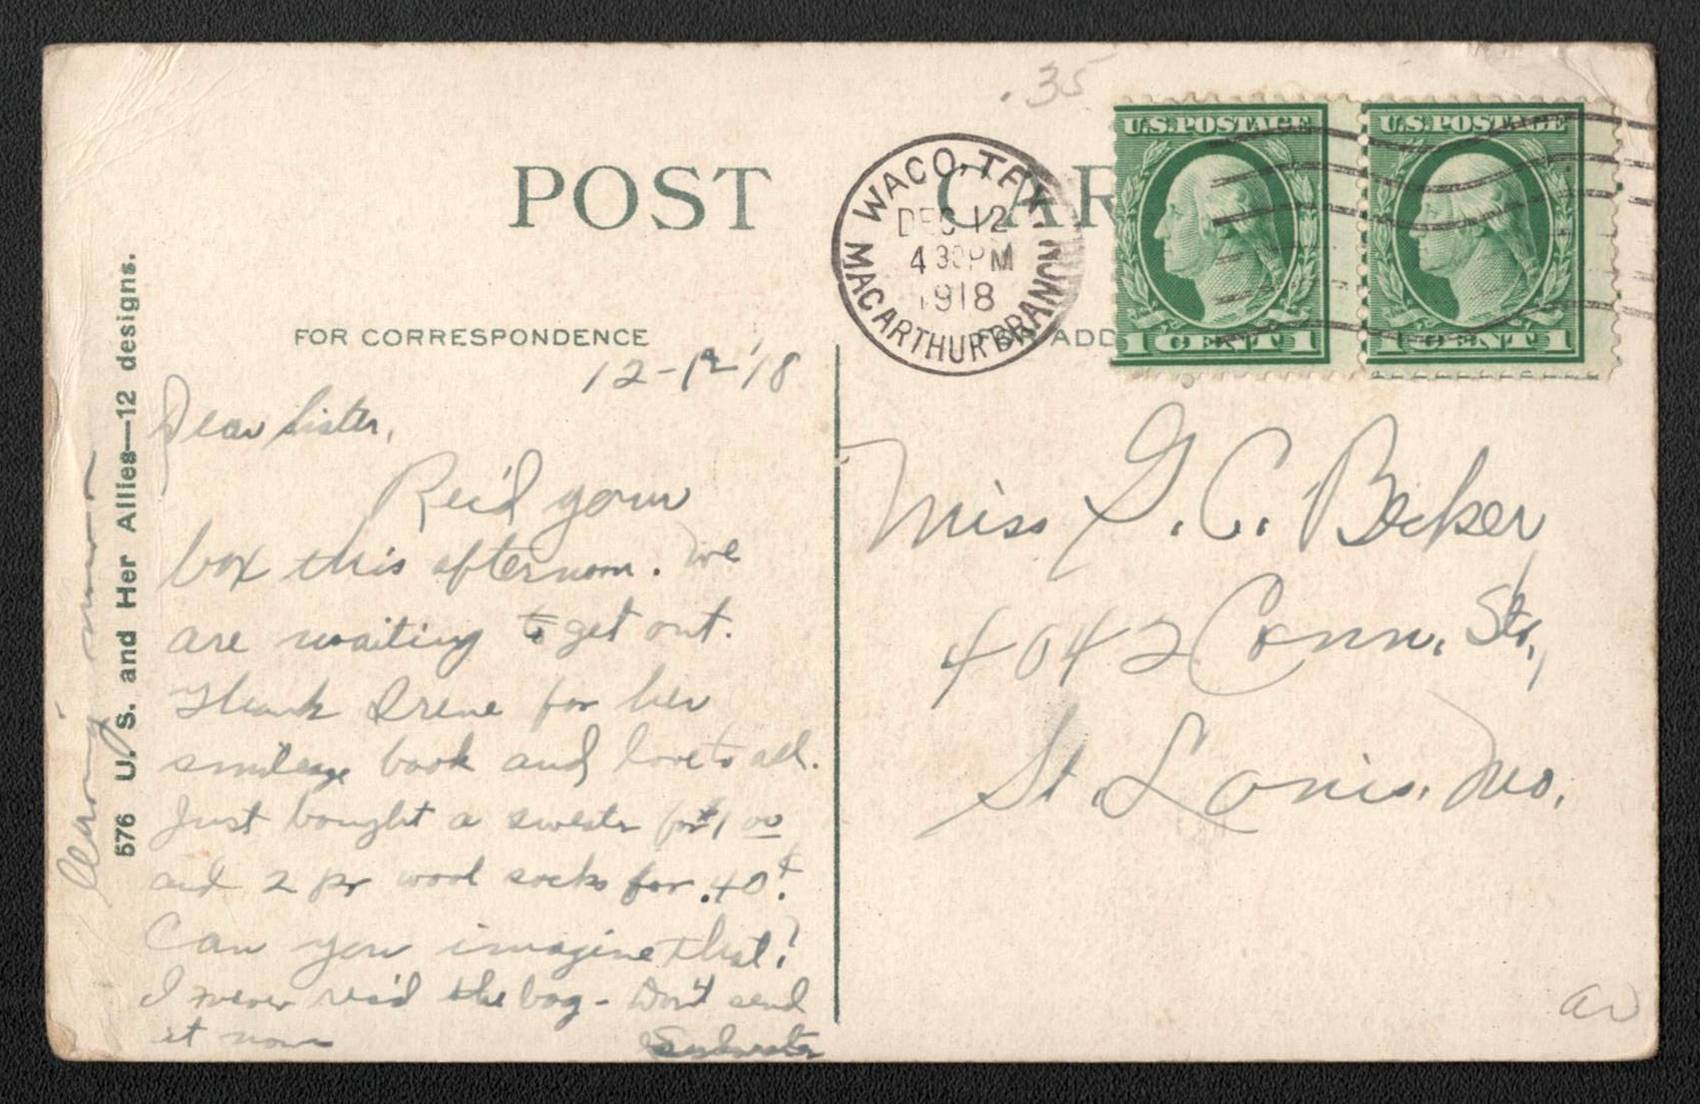 .35
POST CAR
U.S.POSTAGE
1 CENT 1
U.S.POSTAGE
1 CENT 1
WACO, TEX.
DEC 12
4 30 PM
1918
MACARTHUR BRANCH
FOR CORRESPONDENCE
ADD
12-12-'18
Dear Sister,
Rec'd your
box this afternoon. We
are waiting to get out.
Thank Irene for her
smileage book and love to all.
Just bought a sweater for $1.00
and 2 pr wool socks for .40¢.
Can you imagine that?
I never rec'd the bag - Don't send
it now
Sylvester
576 U. S. and Her Allies—12 designs.
Miss G. C. Becker,
4042 Conn. Str.,
St. Louis, Mo.